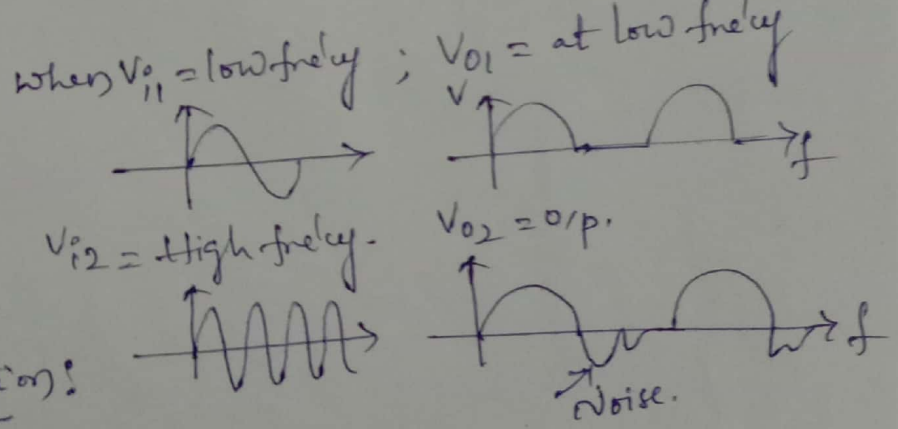 when Vi1 = low frēcy ; Vo1 = at low frēcy
V
f
Vi2 = High frēcy. Vo2 = o/p.
f
ion:
Noise.